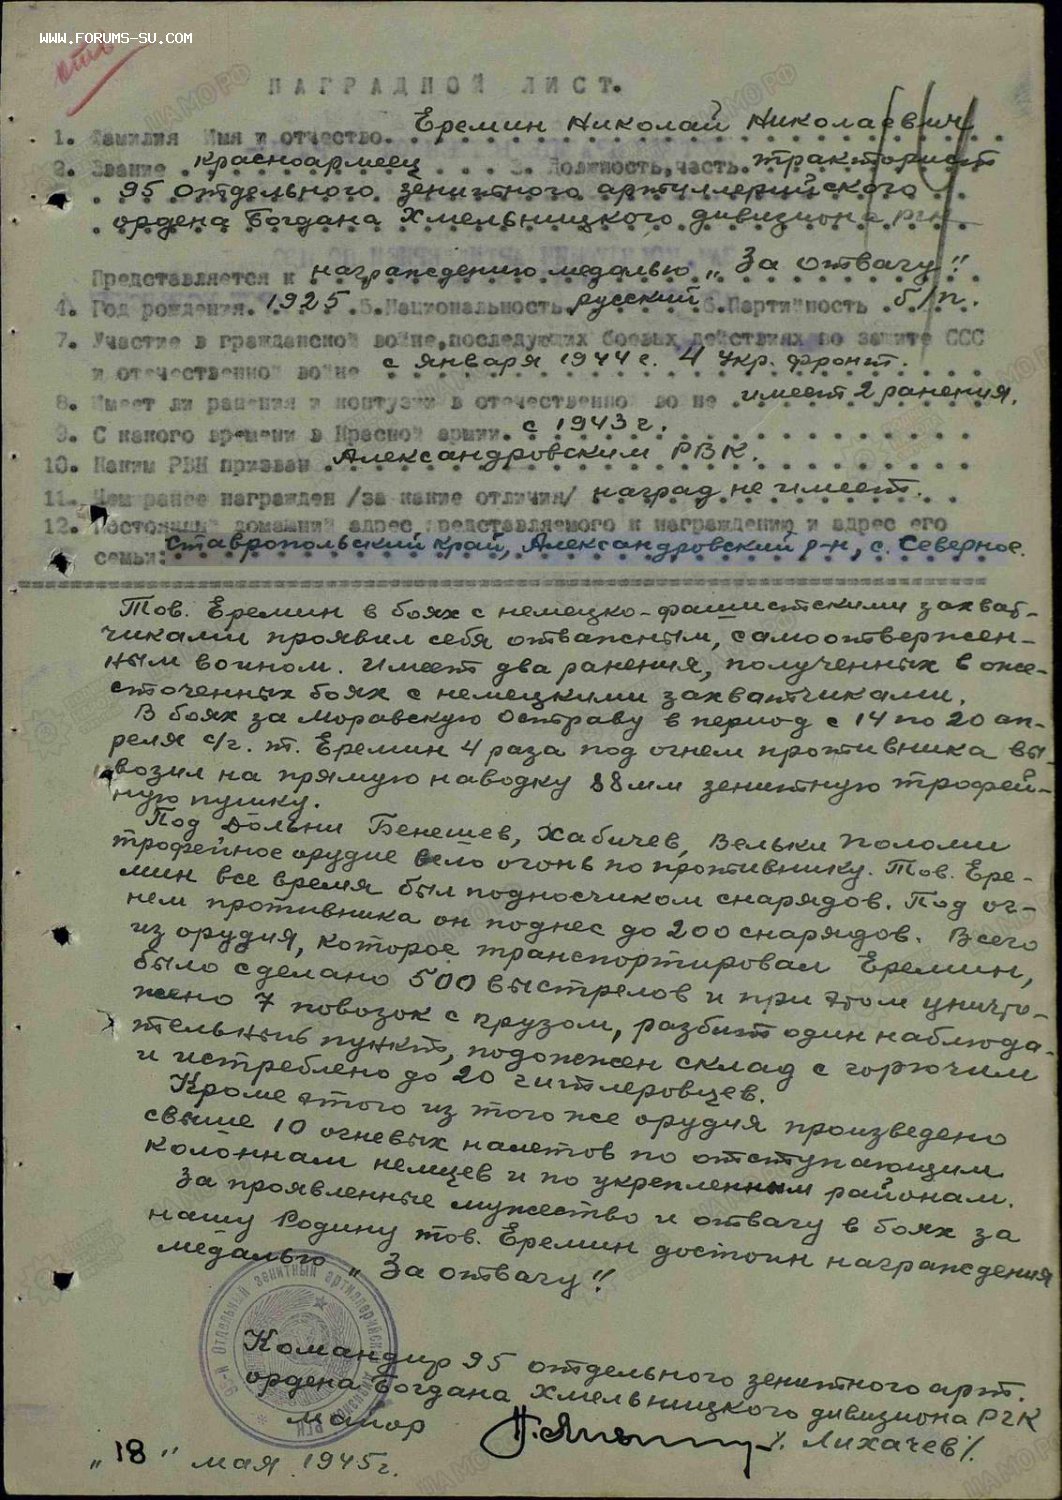 WWW.FORUMS-SU.COM
НАГРАДНОЙ ЛИСТ.
1. Фамилия Имя и отчество. Еремин Николай Николаевич
2. Звание красноармеец 3. Должность, часть. тракторист
95 отдельного зенитного артиллерийского
ордена Богдана Хмельницкого дивизиона РГК
Представляется к награждению медалью „За отвагу"
4. Год рождения. 1925. 5. Национальность. русский. 6. Партийность б/п.
7. Участие в гражданской войне, последующих боевых действиях по защите ССС
и отечественной войне с января 1944 г. 4 Укр. фронт.
8. Имеет ли ранения и контузии в отечественной войне имеет 2 ранения.
9. С какого времени в Красной армии. с 1943 г.
10. Каким РВК призван Александровским РВК.
11. Чем ранее награжден /за какие отличия/ наград не имеет.
12. Постоянный домашний адрес представляемого к награждению и адрес его
семьи: Ставропольский край, Александровский р-н, с. Северное.
Тов. Еремин в боях с немецко-фашистскими захват-
чиками проявил себя отважным, самоотвержен-
ным воином. Имеет два ранения, полученных в оже-
сточенных боях с немецкими захватчиками.
В боях за Моравскую Остраву в период с 14 по 20 ап-
реля с/г. т. Еремин 4 раза под огнем противника вы-
возил на прямую наводку 88 мм зенитную трофей-
ную пушку.
Под Дольни Бенешев, Хабичев, Вельки Поломи
трофейное орудие вело огонь по противнику. Тов. Ере-
мин все время был подносчиком снарядов. Под ог-
нем противника он поднес до 200 снарядов. Всего
из орудия, которое транспортировал Еремин,
было сделано 500 выстрелов и при этом уничто-
жено 7 повозок с грузом, разбит один наблюда-
тельный пункт, подожжен склад с горючим
и истреблено до 20 гитлеровцев.
Кроме этого из того же орудия произведено
свыше 10 огневых налетов по отступающим
колоннам немцев и по укрепленным районам.
За проявленные мужество и отвагу в боях за
нашу Родину тов. Еремин достоин награждения
медалью „За отвагу"
Командир 95 отдельного зенитного арт.
ордена Богдана Хмельницкого дивизиона РГК
майор /Лихачев/.
„18" мая 1945 г.